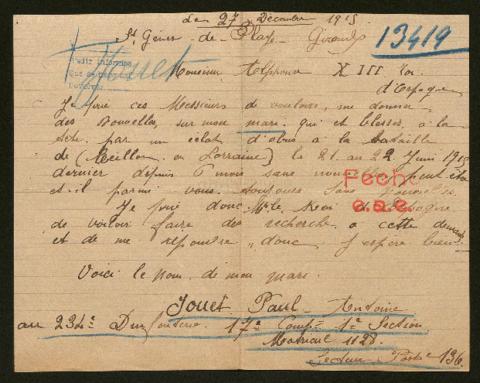 Le 27 Décembre 1915
St Genès de
Gironde
13419
Monsieur Alphonse XIII Roi
d'Espagne
Jouet
Je prie ces Messieurs de vouloire me donner
des nouvelles sur mon mari qui et blesser à la
tete par un éclat d'obus à la bataille
de (Reillon en Lorraine) le 21 au 22 Juin 1915
dernier depuis 6 mois sans peut etre
et-il parmi vous toujours sans nouvelles
Fiche
e.s.e.
Je prie donc Mr le Roi d'Espagne
de vouloir faire des recherche a cette demande
et de me repondre donc J'espère bien
Voici le nom de mon mari
Jouet Paul Antoine
au 234e D'infanterie 17e Compie 1e Section
Matricul 1128
Secteur Postal 136